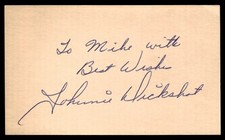 To Mike with
Best Wishes
Johnnie Dickshot